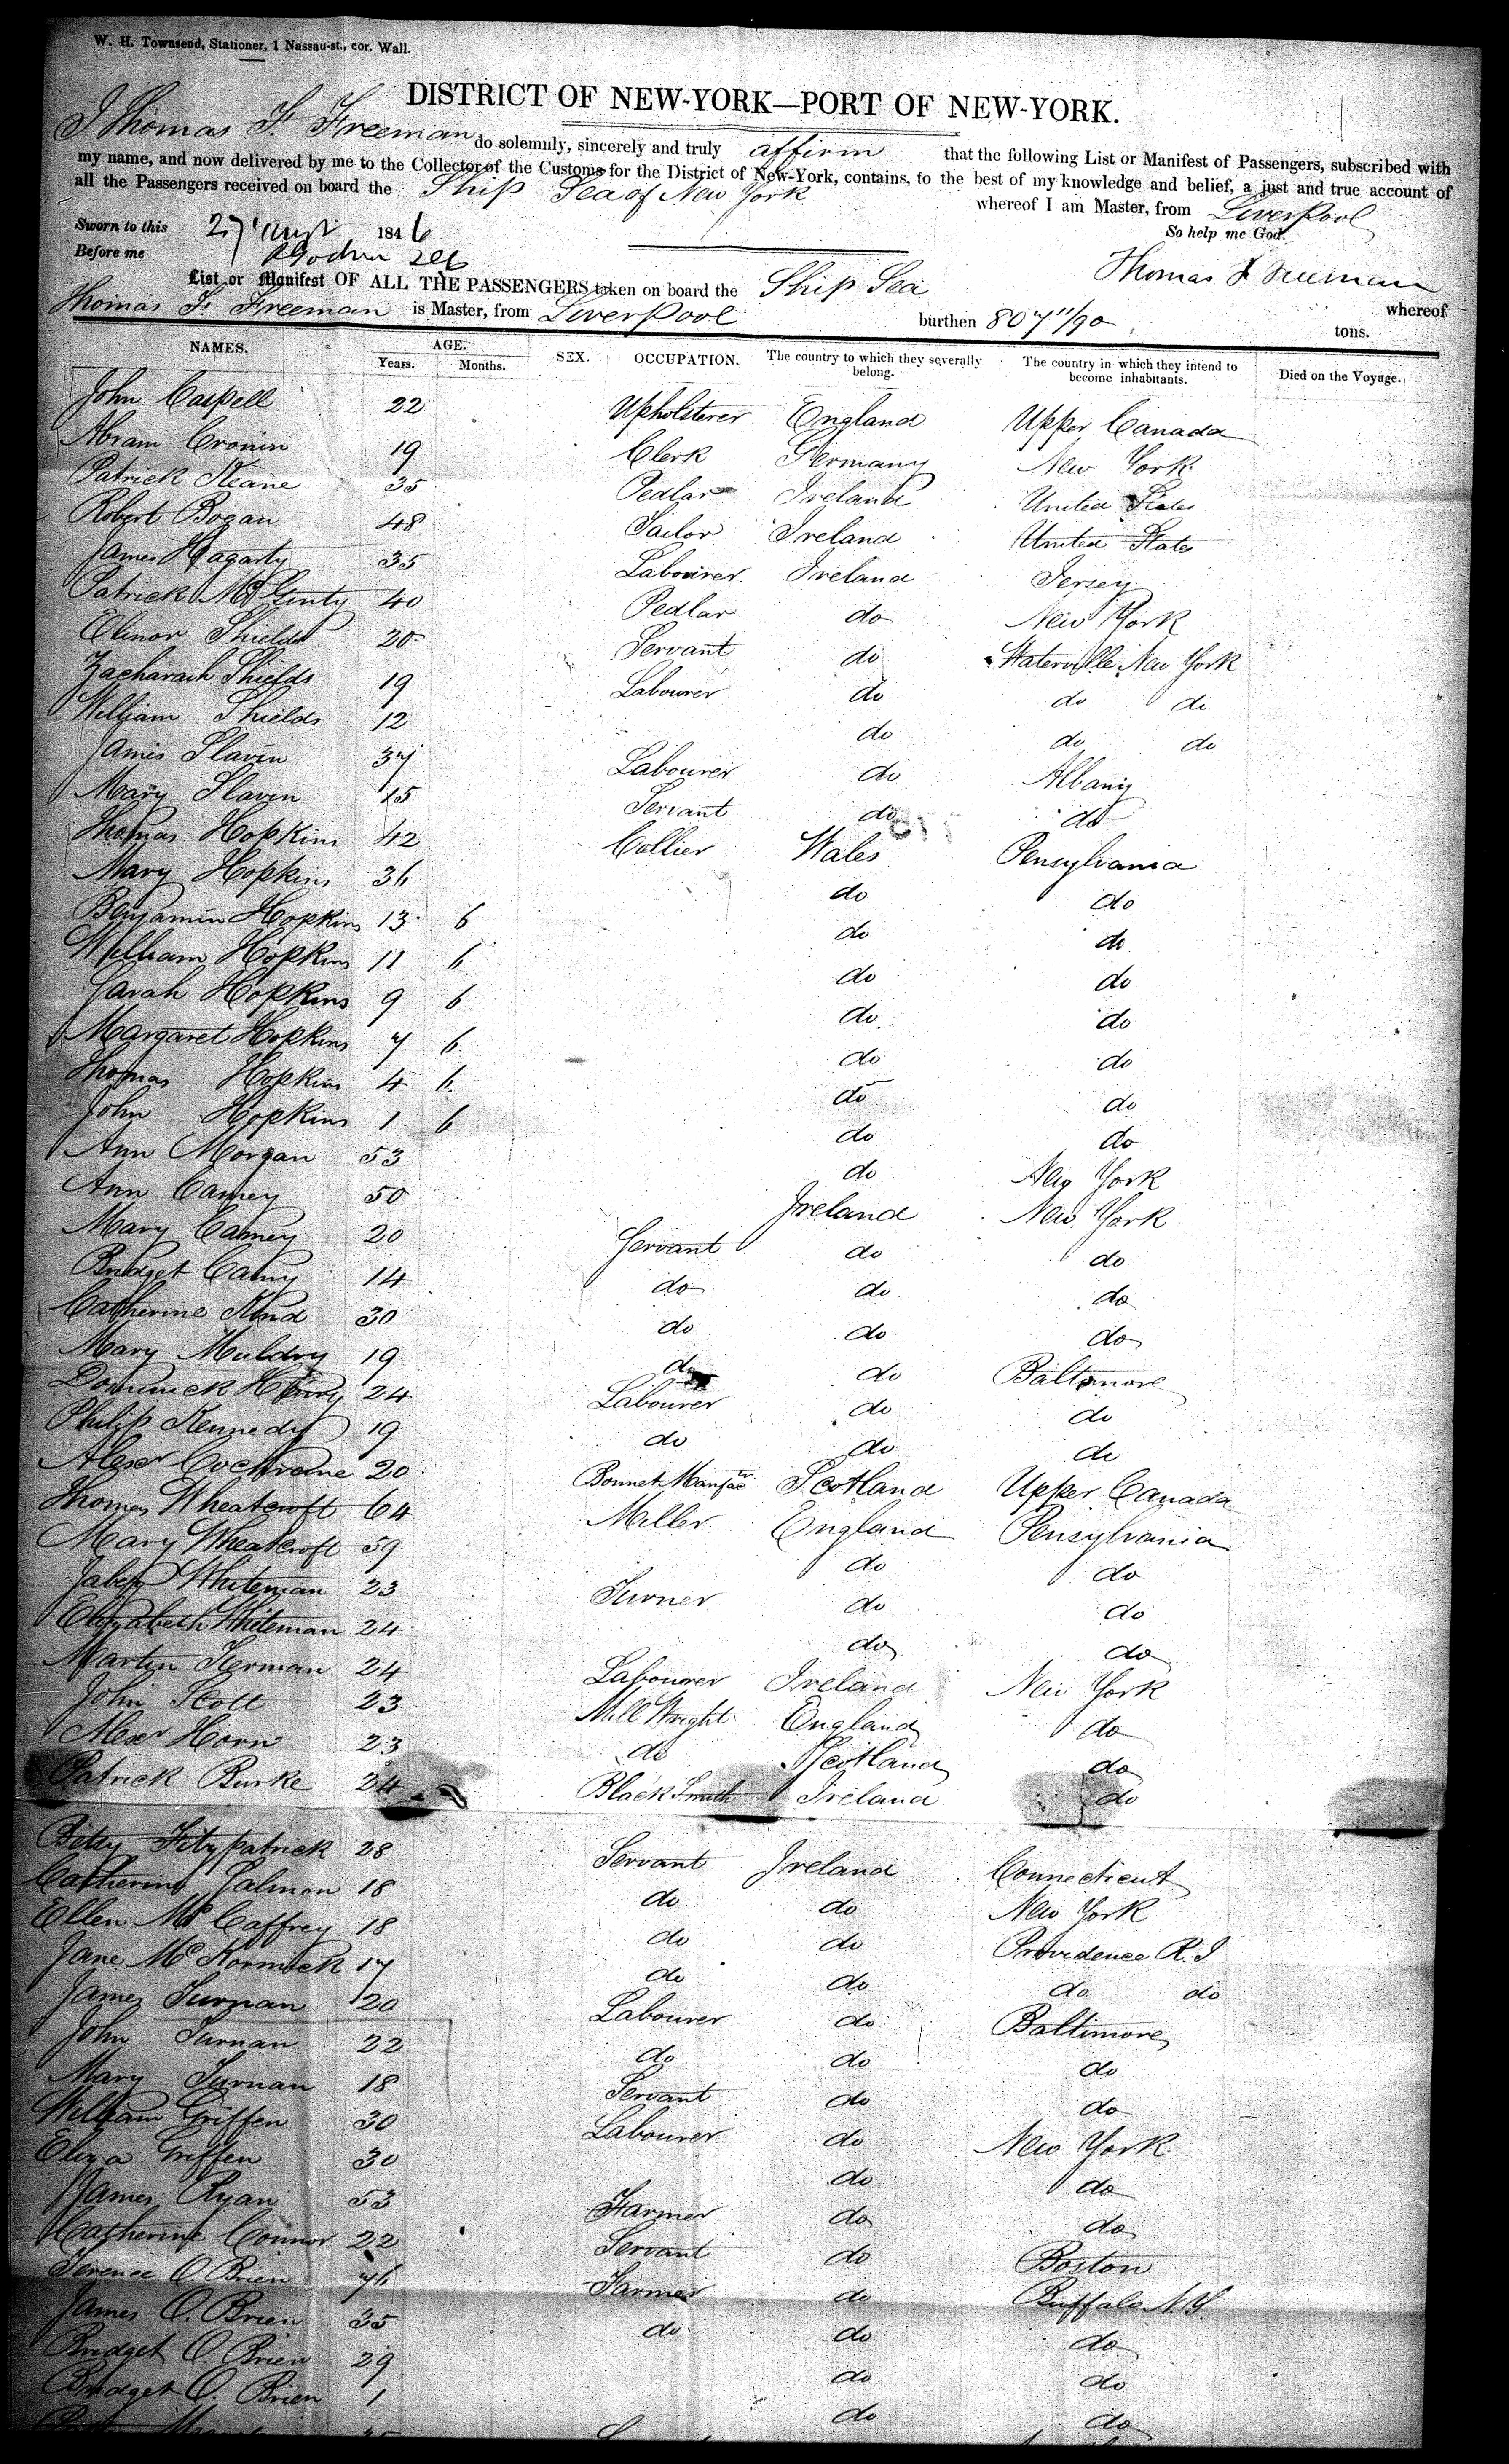 W. H. Townsend, Stationer, 1 Nassau-st., cor. Wall.
DISTRICT OF NEW-YORK—PORT OF NEW-YORK.
I Thomas F. Freeman do solemnly, sincerely and truly affirm that the following List or Manifest of Passengers, subscribed with
my name, and now delivered by me to the Collector of the Customs for the District of New-York, contains, to the best of my knowledge and belief, a just and true account of
all the Passengers received on board the Ship Sea of New York whereof I am Master, from Liverpool
So help me God.
Sworn to this 27 1846
Before me
Thomas F Freeman
List or Manifest OF ALL THE PASSENGERS taken on board the Ship Sea whereof
Thomas F. Freeman is Master, from Liverpool burthen 807 11/90 tons.
NAMES. AGE. Years. Months. SEX. OCCUPATION. The country to which they severally belong. The country in which they intend to become inhabitants. Died on the Voyage.
John Caspell 22 Upholsterer England Upper Canada
Abram Cronin 19 Clerk Germany New York
Patrick Keane 35 Pedlar Ireland United States
Robert Bogan 48 Tailor Ireland United States
James Hagarty 35 Labourer Ireland Jersey
Patrick McGinty 40 Pedlar do New York
Elinor Shields 20 Servant do Waterville New York
Zacharach Shields 19 Labourer do do do
William Shields 12 do do do
James Slavin 37 Labourer do Albany
Mary Slavin 15 Servant do do
Thomas Hopkins 42 Collier Wales Pensylvania
Mary Hopkins 36 do do
Benjamin Hopkins 13 6 do do
William Hopkins 11 6 do do
Sarah Hopkins 9 6 do do
Margaret Hopkins 7 6 do do
Thomas Hopkins 4 6 do do
John Hopkins 1 6 do do
Ann Morgan 53 do New York
Ann Carney 50 Ireland New York
Mary Carney 20 Servant do do
Bridget Carny 14 do do do
Catherine Kind 30 do do do
Mary Muldry 19 do do Baltimore
Dominick Henry 24 Labourer do do
Philip Kennedy 19 do do do
Alexr Cochrane 20 Bonnet Manfacr Scotland Upper Canada
Thomas Wheatcroft 64 Miller England Pensylvania
Mary Wheatcroft 59 do do
Jabez Whiteman 23 Turner do do
Elizabeth Whiteman 24 do do
Martin Kerman 24 Labourer Ireland New York
John Scott 23 Mill Wright England do
Alexr Horn 23 do Scotland do
Patrick Burke 24 Black Smith Ireland do
Betsy Fitzpatrick 28 Servant Ireland Connecticut
Catherine Salmon 18 do do New York
Ellen McCaffrey 18 do do Providence R.I
Jane McKormick 17 do do do do
James Turnan 20 Labourer do Baltimore
John Turnan 22 do do do
Mary Turnan 18 Servant do do
William Griffen 30 Labourer do New York
Eliza Griffen 30 do do
James Ryan 53 Farmer do do
Catherine Connor 22 Servant do Boston
Terence O. Brien 76 Farmer do Buffalo N.Y.
James O. Brien 35 do do do
Bridget O. Brien 29 do do
Bridget O. Brien 1 do do